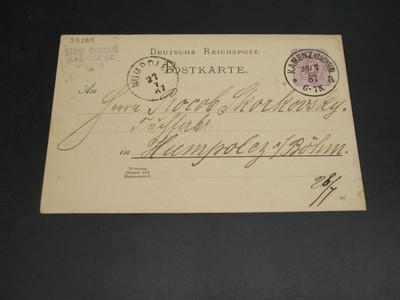 33281
DEUTSCHE REICHSPOST.
POSTKARTE.
KAMENZ
87
6-7N.
HUMPOLEC
27
87
An
Herrn Jacob Skorkovsky
Tuchfabr.
in Humpolec i/Böhm.
Wohnung
(Strasse und
Hausnummer)
28/7